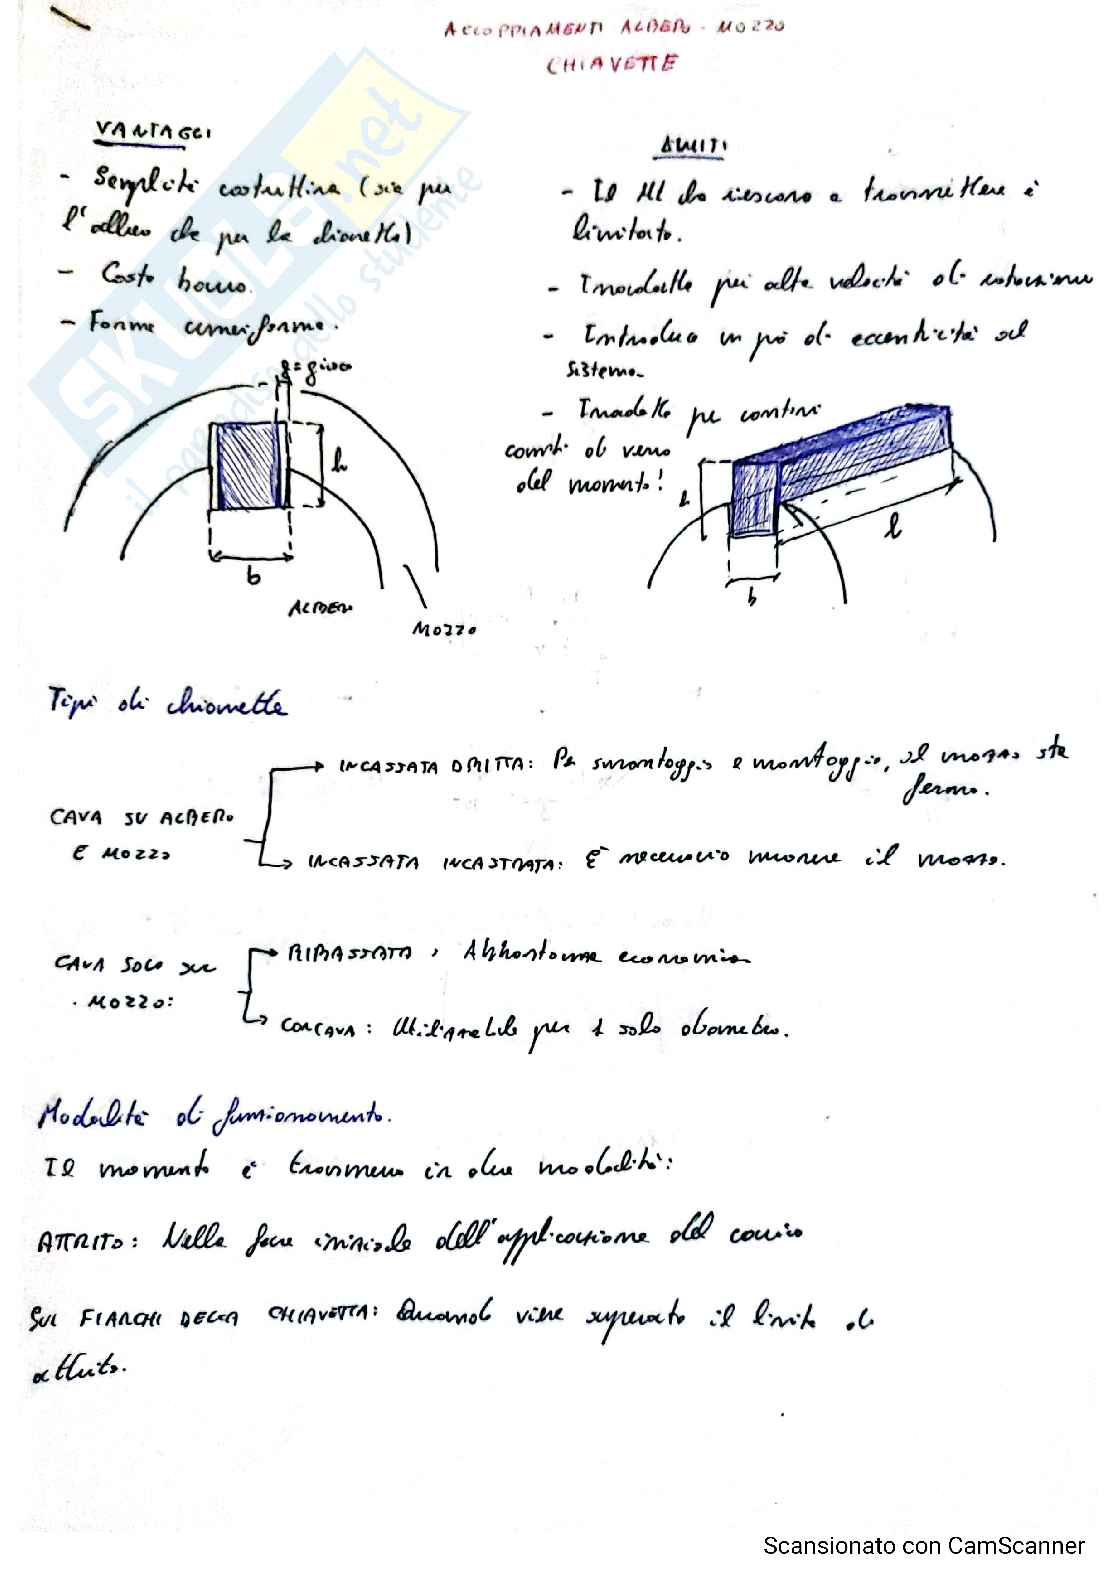 ACCOPPIAMENTI ALBERO - MOZZO
CHIAVETTE
VANTAGGI
- Semplicità costruttiva (sia per
l'albero che per la chiavetta)
- Costo basso.
- Forma cuneiforme.
g = gioco
h
b
ALBERO
MOZZO
LIMITI
- Il Mt che riescono a trasmettere è
limitato.
- Inadatte per alte velocità di rotazione
- Introduce un pò di eccentricità al
sistema.
- Inadatte per continui
cambi di verso
del momento!
h
l
b
Tipi di chiavette
CAVA SU ALBERO
E MOZZO
INCASSATA DRITTA: Per smontaggio e montaggio, il mozzo sta
fermo.
INCASSATA INCASTRATA: È necessario muovere il mozzo.
CAVA SOLO SUL
MOZZO:
RIBASSATA, Abbastanza economica
CONCAVA: Utilizzabile per 1 solo diametro.
Modalità di funzionamento.
Il momento è trasmesso in due modalità:
ATTRITO: Nella fase iniziale dell'applicazione del carico
SUI FIANCHI DELLA CHIAVETTA: Quando viene superato il limite di
attrito.
SKUOLA.net
il paradiso dello studente
Scansionato con CamScanner